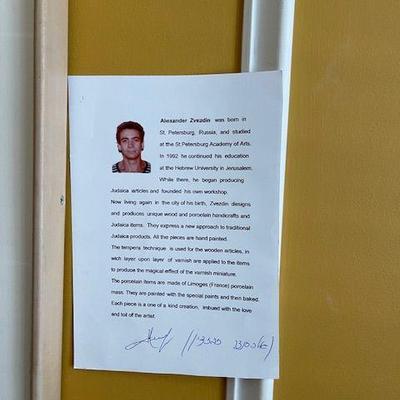 Alexander Zvezdin was born in
St. Petersburg, Russia, and studied
at the St.Petersburg Academy of Arts.
In 1992 he continued his education
at the Hebrew University in Jerusalem.
While there, he began producing
Judaica articles and founded his own workshop.
Now living again in the city of his birth, Zvezdin designs
and produces unique wood and porcelain handicrafts and
Judaica items. They express a new approach to traditional
Judaica products. All the pieces are hand painted.
The tempera technique is used for the wooden articles, in
wich layer upon layer of varnish are applied to the items
to produce the magical effect of the varnish miniature.
The porcelain items are made of Limoges (France) porcelain
mass. They are painted with the special paints and then baked.
Each piece is a one of a kind creation, imbued with the love
and toil of the artist.